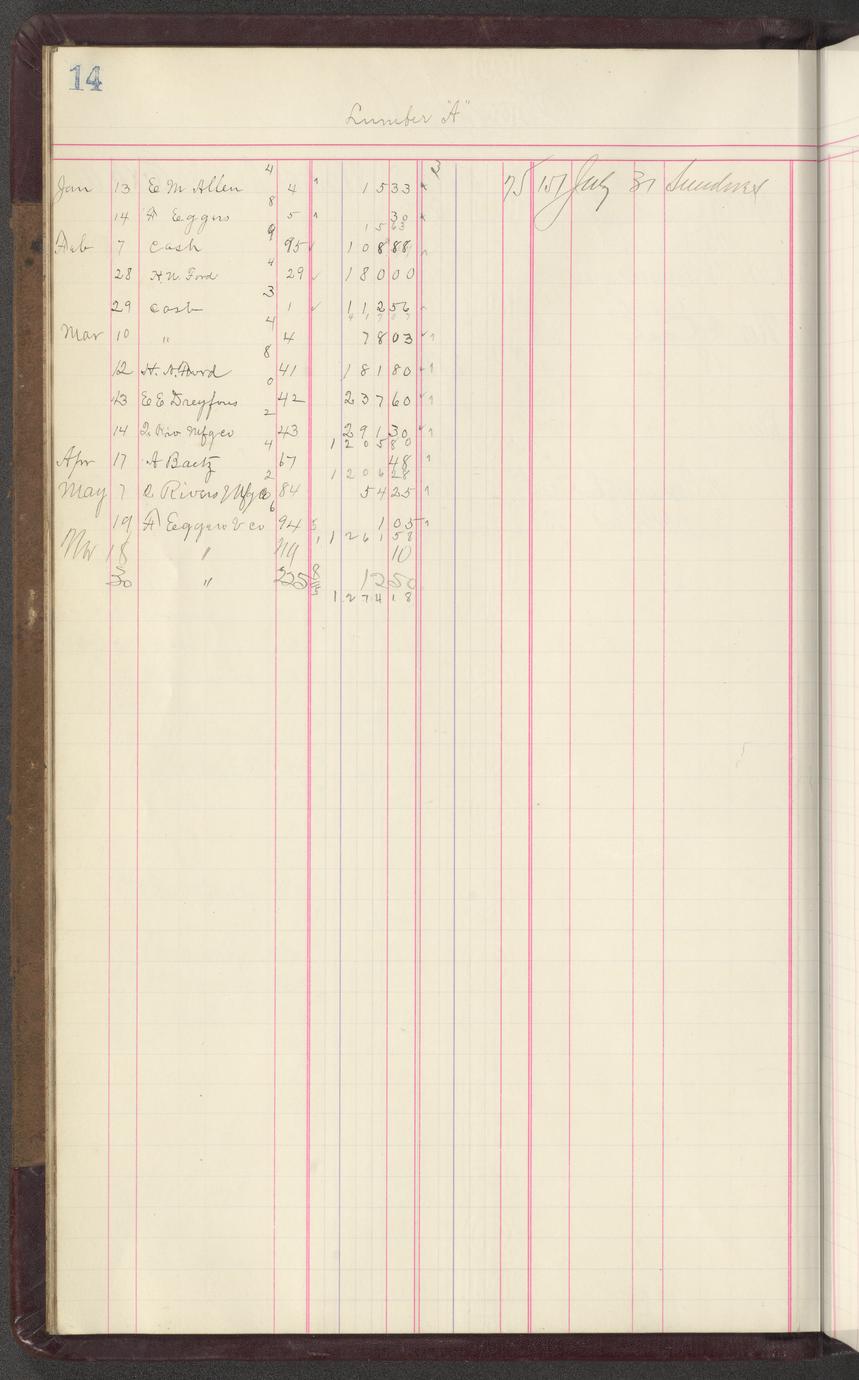 14
Lumber "A"
Jan 13 E M Allen 4 4 1533 3 75 157 July 31 Sundries
14 A Eggers 8 5 30
1563
Feb 7 Cash 9 95 10888
28 H. N. Ford 4 29 18000
29 Cash 3 1 11256
Mar 10 " 4 4 7803
12 H. N. Ford 8 41 18180
13 E E Dreyfous 0 42 23760
14 2 Riv Mfg Co 2 43 29130
120580
Apr 17 A Baetz 4 67 48
120628
May 7 2 Rivers Mfg Co 2 84 5425
19 A Eggers & Co 6 94 105
126158
18 " 10
30 " 225 1250
127418